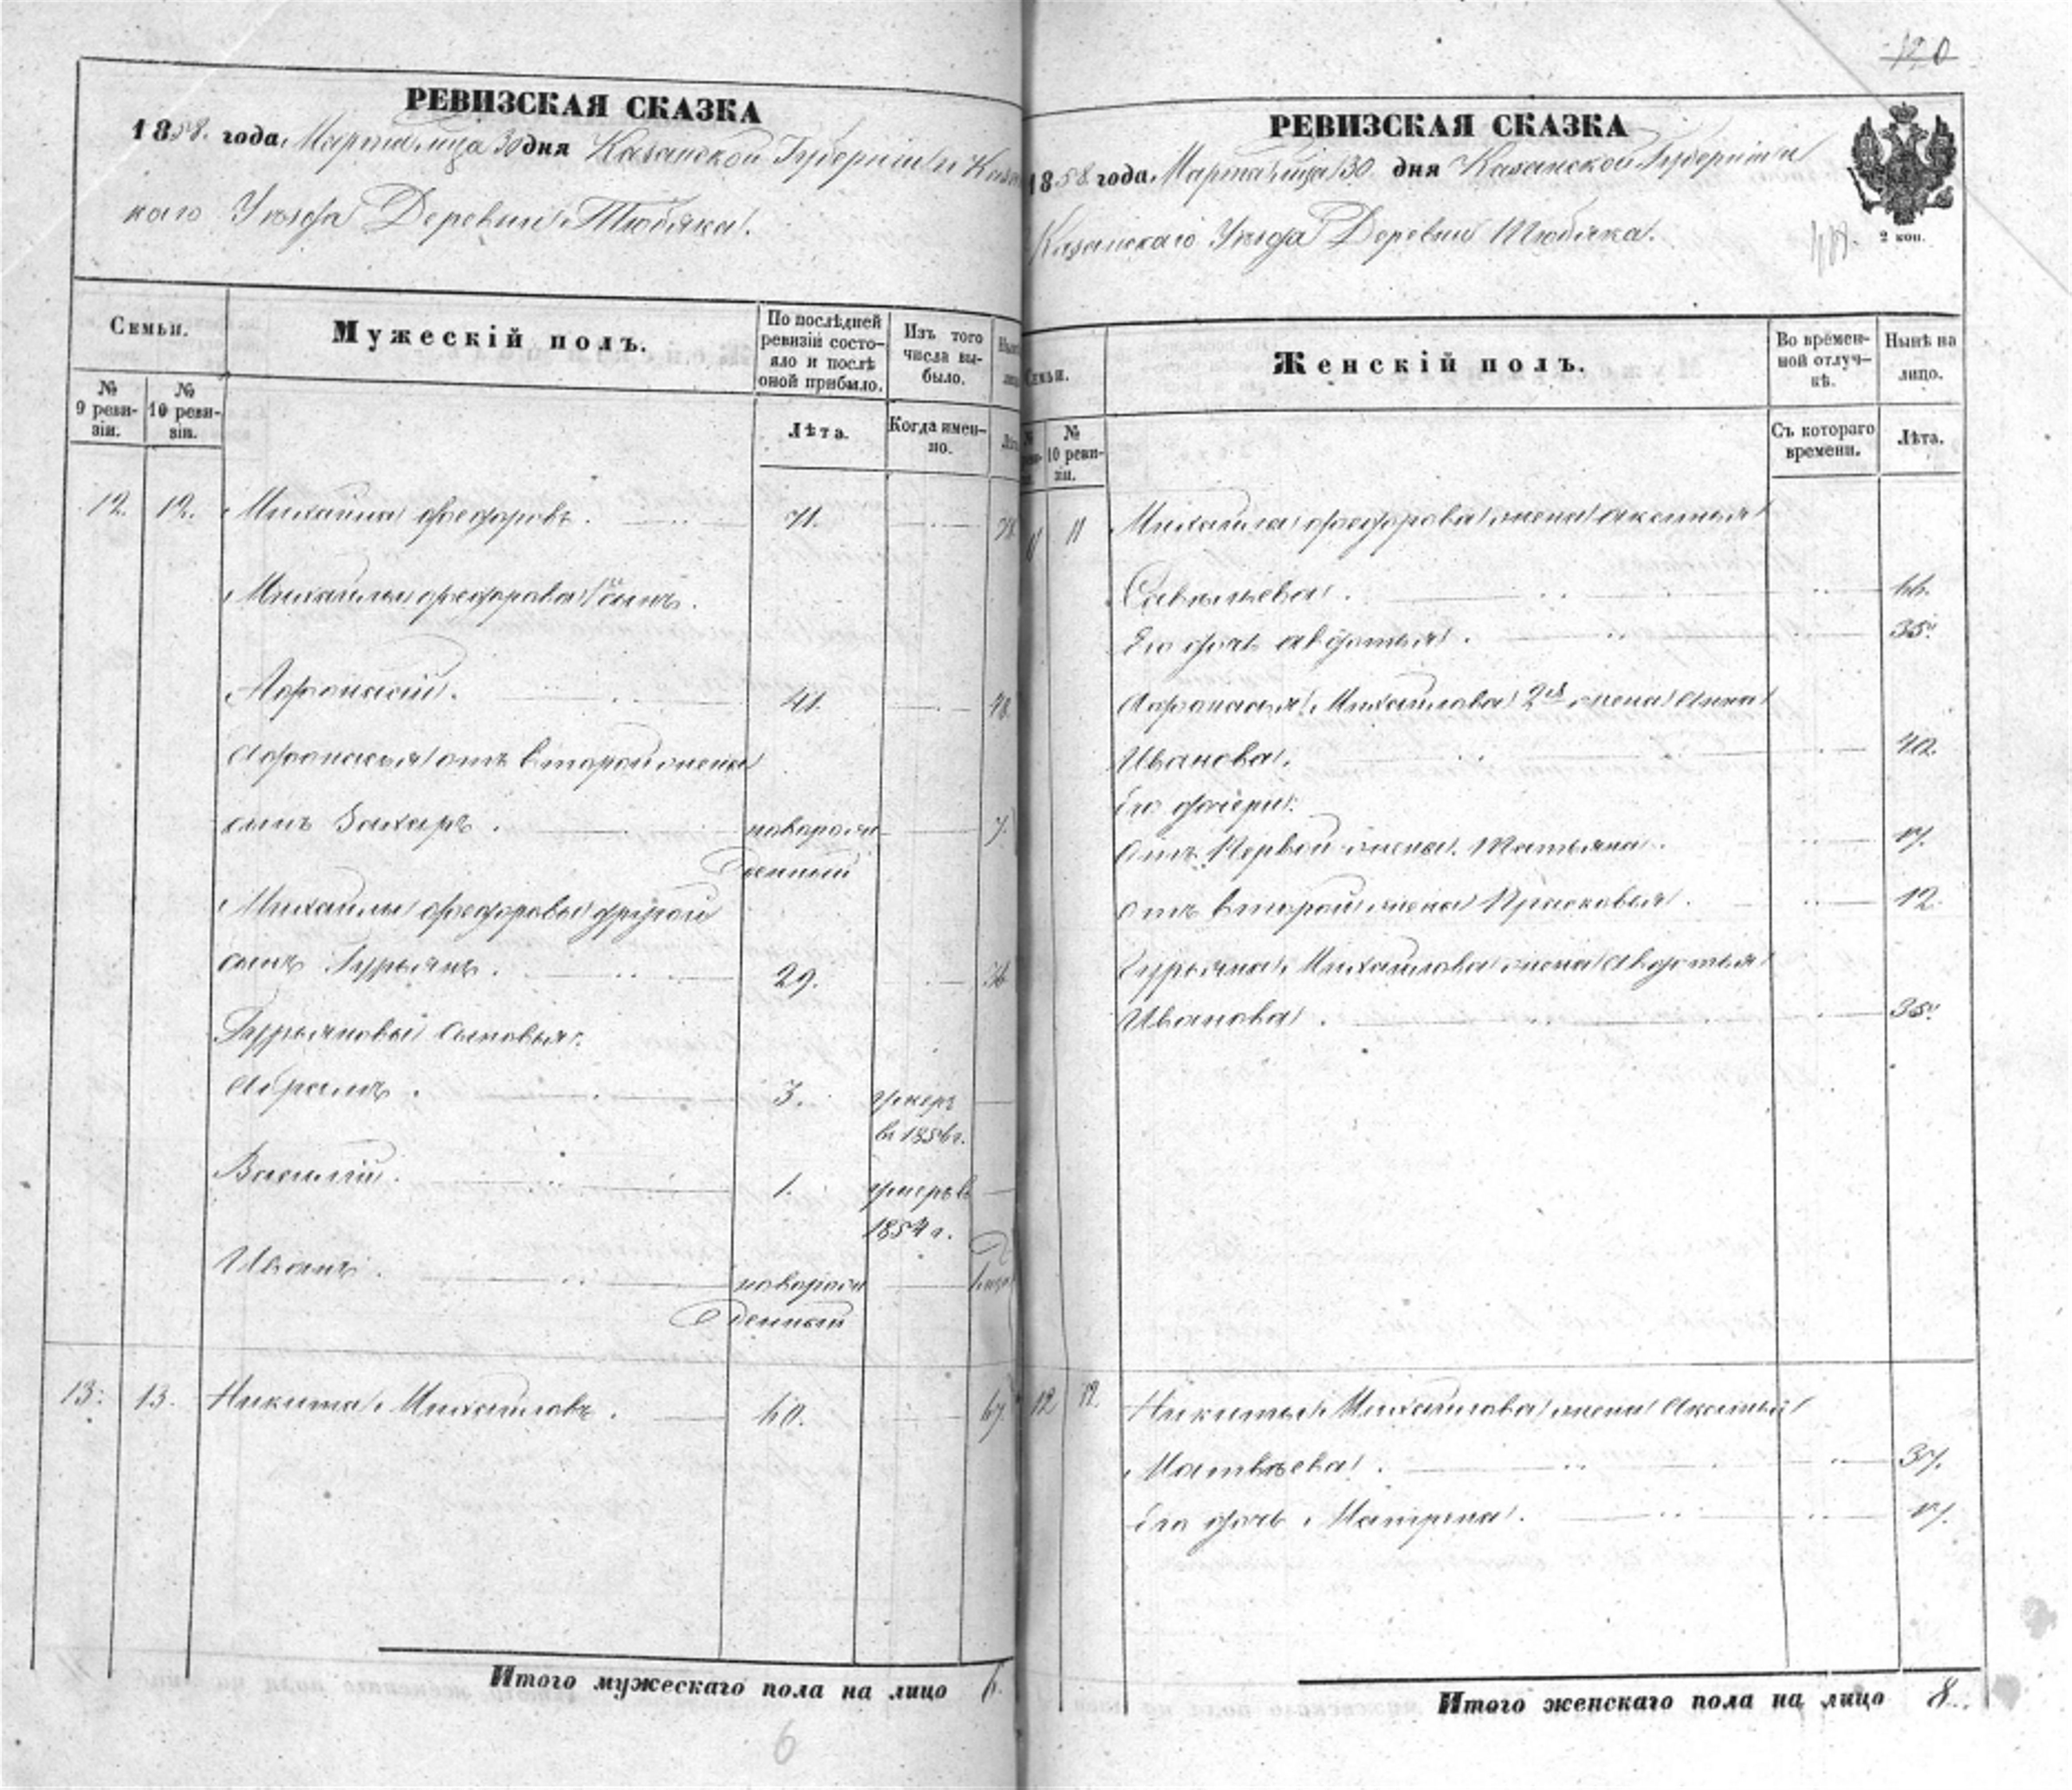 120
РЕВИЗСКАЯ СКАЗКА
1858. года Марта мца 30 дня Казанской Губернии Казанс
каго Уезда Деревни Тюбяка.
Семьи.
Мужескій полъ.
По послѣдней ревизіи состояло и послѣ оной прибыло.
Изъ того числа выбыло.
№ 9 ревизіи.
№ 10 ревизіи.
Лѣта.
Когда именно.
12. 12. Михайла Федоровъ. 71. 78.
Михайлы Федорова сынъ.
Афонасий. 41. 48.
Афонасья отъ второй жены
сынъ Захаръ. новорожденный 7.
Михайлы Федорова другой
сынъ Гурьянъ. 29. 36
Гурьяновы сыновья:
Абрамъ. 3. умеръ в 1856 г.
Василий. 1. умеръ в 1854 г.
Иванъ. новорожденный
13. 13. Никита Михайловъ. 60. 67
Итого мужескаго пола на лицо 6.
6
РЕВИЗСКАЯ СКАЗКА
1858 года Марта мца 30 дня Казанской Губернии
Казанскаго Уезда Деревни Тюбяка.
2 коп.
Семьи.
Женскій полъ.
Во временной отлучкѣ.
Нынѣ на лицо.
№ 10 ревизіи.
Съ котораго времени.
Лѣта.
11 Михайла Федорова жена Аксинья
Савельева. 66.
Его дочь Авдотья. 35.
Афонасья Михайлова 2я жена Анна
Иванова. 42.
Его дочери:
Отъ Первой жены Татьяна. 17.
Отъ второй жены Прасковья. 12.
Гурьяна Михайлова жена Авдотья
Иванова. 35.
12 12. Никиты Михайлова жена Аксинья
Матвеева. 37.
Его дочь Матрена. 17.
Итого женскаго пола на лицо 8.